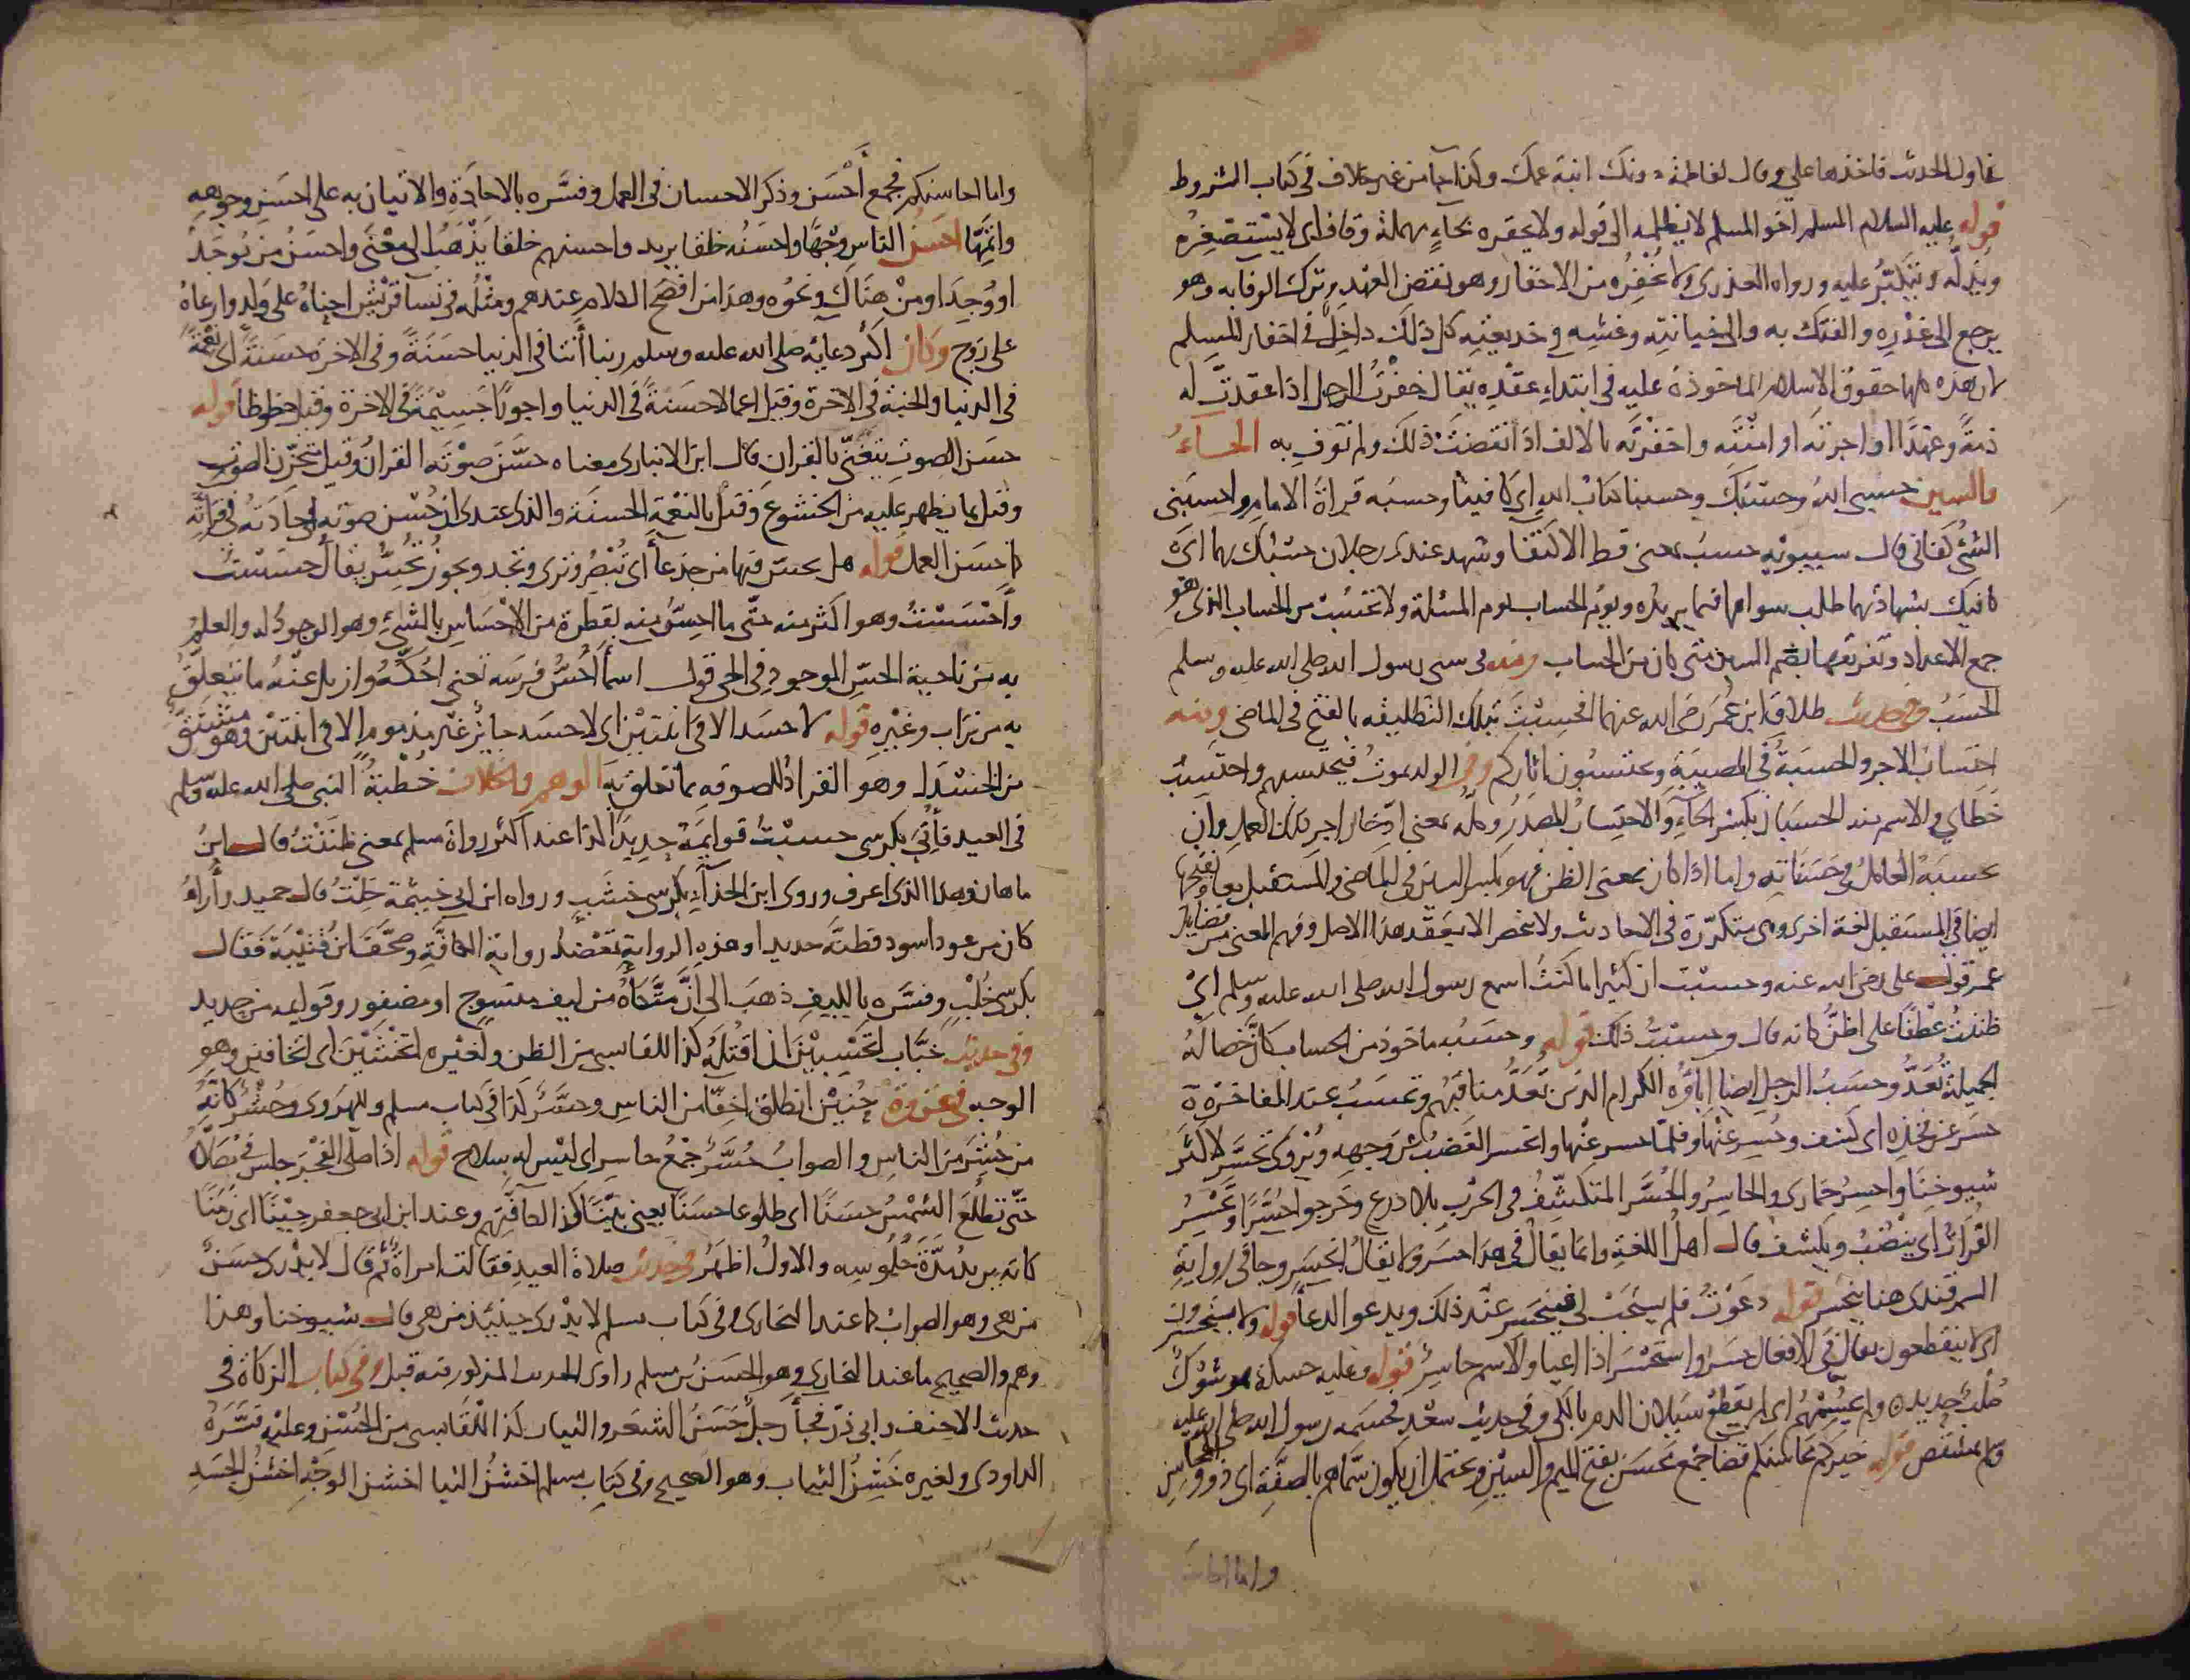 فاول الحديث فاخذها علي وقال لفاطمة دونك ابنة عمك وكذا جا من غير خلاف في كتاب الشروط
قوله عليه السلام المسلم اخو المسلم لا يظلمه الى قوله ولا يحقره بحاء مهملة وقاف اى لا يستصغره
ويذله ويتكبر عليه ورواه العذرى ولا يخفره من الاخفار وهو نقض العهد وترك الوفا به وهو
يرجع الى غدره والفتك به والى خيانته وغشه وخديعته كل ذلك داخل في اخفار المسلم
لان هذه كلها حقوق الاسلام الماخوذة عليه في ابتداء عقده يقال خفرت الرجل اذا عقدت له
ذمة وعهدا او اجرته او امنته واخفرته بالالف اذا نقضت ذلك ولم توف به الحاء
والسين حسبى الله وحسبك وحسبنا كتاب الله اى كافينا وحسبه قراة الامام واحسبنى
الشئ كفانى قال سيبويه حسب بمعنى قط الاكتفا وشهد عندى رجلان حسبك بهما اى
كافيك بشهادتهما طلب سواهما فيما يريده ويوم الحساب يوم المسئلة ولا تحسبت من الحساب الذى هو
جمع الاعداد وتفريقها بضم السين متى كان من الحساب ومنه في سبى رسول الله صلى الله عليه وسلم
الحسب وفي حديث طلاق ابن عمر رضى الله عنهما فحسبت بتلك التطليقه بالفتح في الماضى ومنه
احتساب الاجر والحسبة في المصيبة وتحتسبون اثاركم وفي الولد يموت فيحتسبهم واحتسبت
خطاي والاسم منه الحسبان بكسر الحاء والاحتساب المصدر وكله بمعنى ادخار اجر ذلك العمل وان
يحسبه العامل في حسناته واما اذا كان بمعنى الظن فهو بكسر السين في الماضى والمستقبل معا وبفتحها
ايضا في المستقبل لغة اخرى وهى متكررة في الاحاديث ولا تخص الا بتفقد هذا الاصل وفهم المعنى من
عمر قول على رضى الله عنه وحسبت ان كثيرا ما كنت اسمع رسول الله صلى الله عليه وسلم اى
ظننت عطفا على اظن كانه قال وحسبت ذلك قوله وحسبه ماخوذ من الحساب كان خصاله
الجميلة تعد وحسب الرجل ايضا اباؤه الكرام الذين تعد مناقبهم وتحسب عند المفاخرة
حسر عن فخذه اى كشف وحسر عنها وفلما حسر عنها وانحسر الغضب عن وجهه ويروى تحسر لاكثر
شيوخنا واحسر خمارى والحاسر والحسر المتكشف في الحرب بلا درع وخرجوا حسرا ويحسر
الفرات اى ينضب ويكشف قال اهل اللغة وانما يقال في هذا حسر ولا يقال انحسر وجا في رواية
السمرقندى هنا ينحسر قوله دعوت فلم يستجب لى فيستحسر عند ذلك ويدعو الدعا قوله ولا يستحسرون
اى لا ينقطعون يقال في الافعال حسر واستحسر اذا اعيا والاسم حاسر قوله وعليه حسكة هو شوك
صلب حديد ولم يحسمهم اى لم يقطع سيلان الدم بالكى وفي حديث سعد فحسمه رسول الله صلى الله عليه
قوله خيركم محاسنكم قضا جمع محسن بفتح الميم والسين ويحتمل ان يكون سماهم بالصفة اى ذوو المحاسن
واما احاسنكم
واما احاسنكم فجمع أحسن وذكر الاحسان في العمل وفسره بالاجادة والاتيان به على احسن وجوهه
واتمها احسن الناس وجها واحسنه خلقا يريد واحسنهم خلقا يذهب الى معنى واحسن من يوجد
او وجد او من هناك ونحوه وهذا من افصح الكلام عندهم ومثله في نسا قريش احناه على ولد وارعاه
على زوج وكان اكثر دعايه صلى الله عليه وسلم ربنا أتنا في الدنيا حسنة وفي الاخرة حسنة اى نعمة
في الدنيا والجنة في الاخرة وقيل اعمالا حسنة في الدنيا واجورا جسيمة في الاخرة وقيل حظوظا قوله
حسن الصوت يتغنى بالقران قال ابن الانبارى معناه حسن صوته القران وقيل تحزن الصوت
وقيل بما يظهر عليه من الخشوع وقيل بالنغمة الحسنة والذى عندى ان حسن صوته اجادته في قراته
كاحسن العمل قوله هل تحس فيها من جدعا أى تبصر وترى وتجد ويجوز تحس يقال حسست
وأحسست وهو اكثر منه حتى ما احس منه بقطرة من الاحساس بالشئ وهو الوجود له والعلم
به من ناحية الحس الموجود في الحى قول اسما احس فرسه تعنى احكه وازيل عنه ما يتعلق
به من تراب وغيره قوله لا حسد الا في اثنتين اى لا حسد جايز غير مذموم الا في اثنتين وهو مشتق
من الحسدل وهو القراد للصوقه بما تعلق به الوهم والخلاف خطبة النبى صلى الله عليه وسلم
في العيد فأتي بكرسى حسبت قوايمه حديدا كذا عند اكثر رواة مسلم بمعنى ظننت قال ابن
ماهان وهذا الذى اعرف وروى ابن الحذاء بكرسى خشب ورواه ابن ابى خيثمة خلت قال حميد وأراه
كان من عود أسود فظنه حديدا وهذه الرواية تعضد رواية الكافة وصحفه ابن قتيبة فقال
بكرسى خلب وفسره بالليف ذهب الى ان متكأه من ليف منسوج او مضفور وقوايمه من حديد
وفي حديث خباب اتحسبين ان اقتله كذا للقابسى من الظن ولغيره اتخشين اى اتخافين وهو
الوجه في غزوة حنين انطلق اخفا من الناس وحسر كذا في كتاب مسلم وللهروى وحشر كانه
من حشر من الناس والصواب حسر جمع حاسر اى ليس له سلاح قوله اذا صلى الفجر جلس في مصلاه
حتى تطلع الشمس حسنا اى طلوعا حسنا يعنى بينا كذا لكافتهم وعند ابن ابى جعفر حينا اى زمنا
كانه يريد مدة جلوسه والاول اظهر في حديث صلاة العيد فقالت امراة ثم قال لا يدرى حسن
من هى وهو الصواب كما عند البخارى وفي كتاب مسلم لا يدرى حينئذ من هى قال شيوخنا وهذا
وهم والصحيح ما عند البخارى وهو الحسن بن مسلم راوى الحديث المذكور فيه قبل وفي كتاب الزكاة في
حديث الاحنف وابى ذر فجأ رجل حسن الشعر والثياب كذا للقابسى من الحسن وعليه فسره
الداودى ولغيره خشن الثياب وهو الصحيح وفي كتاب مسلم اخشن الثيا اخشن الوجه اخشن الجسد